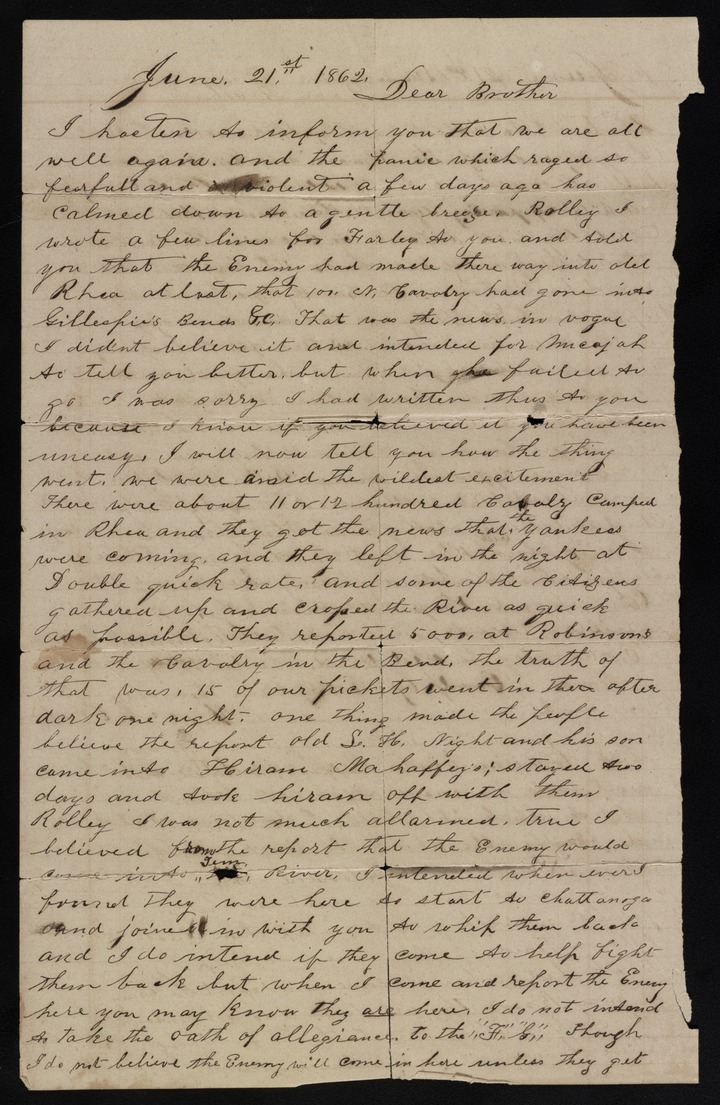 June. 21.st 1862.
Dear Brother
I hasten to inform you that we are all
well again. and the panic which raged so
fearfull and violent a few days ago has
calmed down to a gentle breeze. Rolley I
wrote a few lines for Farley to you and told
you that the Enemy had made there way into old
Rhea at last, that 100. N. Cavalry had gone into
Gillespie's Bends &C. That was the news in vogue
I didnt believe it and intended for Micajah
to tell you better. but when he failed to
go I was sorry I had written thus to you
because I know if you believed it you have been
uneasy. I will now tell you how the thing
went. we were amid the wildest excitement
There were about 11 or 12 hundred Cavalry Camped
in Rhea and they got the news that the Yankees
were coming. and they left in the night at
Double quick rate. and some of the Citizens
gathered up and crossed the River as quick
as possible. They reported 5000. at Robinsons
and the Cavalry in the Bend. the truth of
that was. 15 of our pickets went in there after
dark one night. one thing made the people
believe the report old S. H. Night and his son
came into Hiram Mahaffey's; stayed two
days and took hiram off with them
Rolley I was not much allarmed. true I
believed from the report that the Enemy would
come into Tenn. River. I intended when ever I
found they were here to start to Chattanoga
and joined in with you to whip them back
and I do intend if they come to help fight
them back but when I come and report the Enemy
here you may know they are here. I do not intend
to take the oath of allegiance. to the "F." "C." Though
I do not believe the Enemy will come in here unless they get